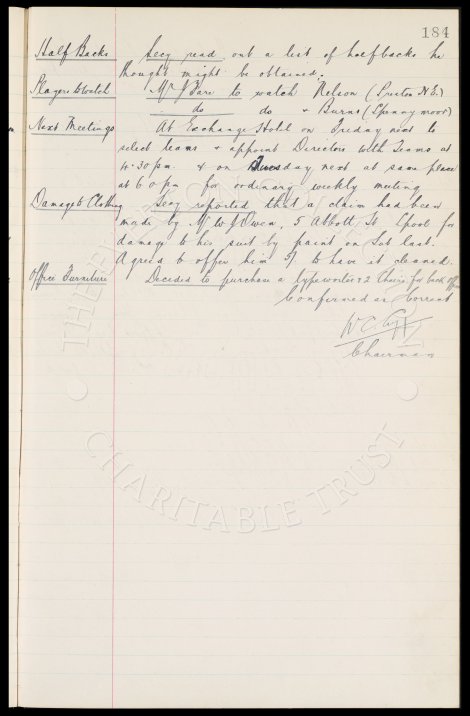 184
Half Backs Secy read out a list of halfbacks he
thought might be obtained.
Players to watch Mr J Dare to watch Nelson (Preston N.E.)
do do + Burns (Spennymoor)
Next Meetings At Exchange Hotel on Friday next to
select teams + appoint Directors with Teams at
4.30 pm + on Tuesday next at same place
at 6 0 pm for ordinary weekly meeting
Damage to Clothing Secy reported that a claim had been
made by Mr W J Owen, 5 Abbott St Lpool for
damage to his suit by paint on Sat last.
Agreed to offer him 5/ to have it cleaned.
Office Furniture Decided to purchase a typewriter + 2 Chairs for back office
Confirmed as Correct
Chairman
CHARITABLE TRUST